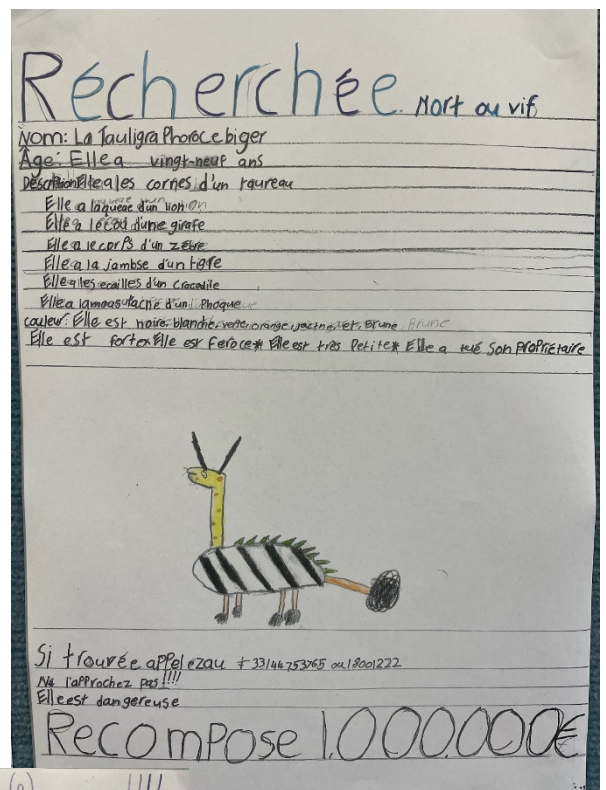 Récherchée Mort ou vif
Nom: La TauligraPhorocebiger
Âge: Elle a vingt-neuf ans
Déscription: Elle a les cornes d'un taureau
Elle a la queue d'un lion
Elle a le cou d'une girafe
Elle a le corps d'un zèbre
Elle a la jambse d'un tigre
Elle a les ecailles d'un Crocodile
Elle a la moustache d'un Phoque
couleur: Elle est noire, blanche, verte, orange, et, Brune Brune
Elle est forte* Elle est Feroce* Elle est très Petite* Elle a tué Son PROPRIETAIRE
Si trouvée appelez au + 33144753765 ou 18001222
Ne l'approchez pas!!!!
Elle est dangereuse
Recompose 1.000.000€